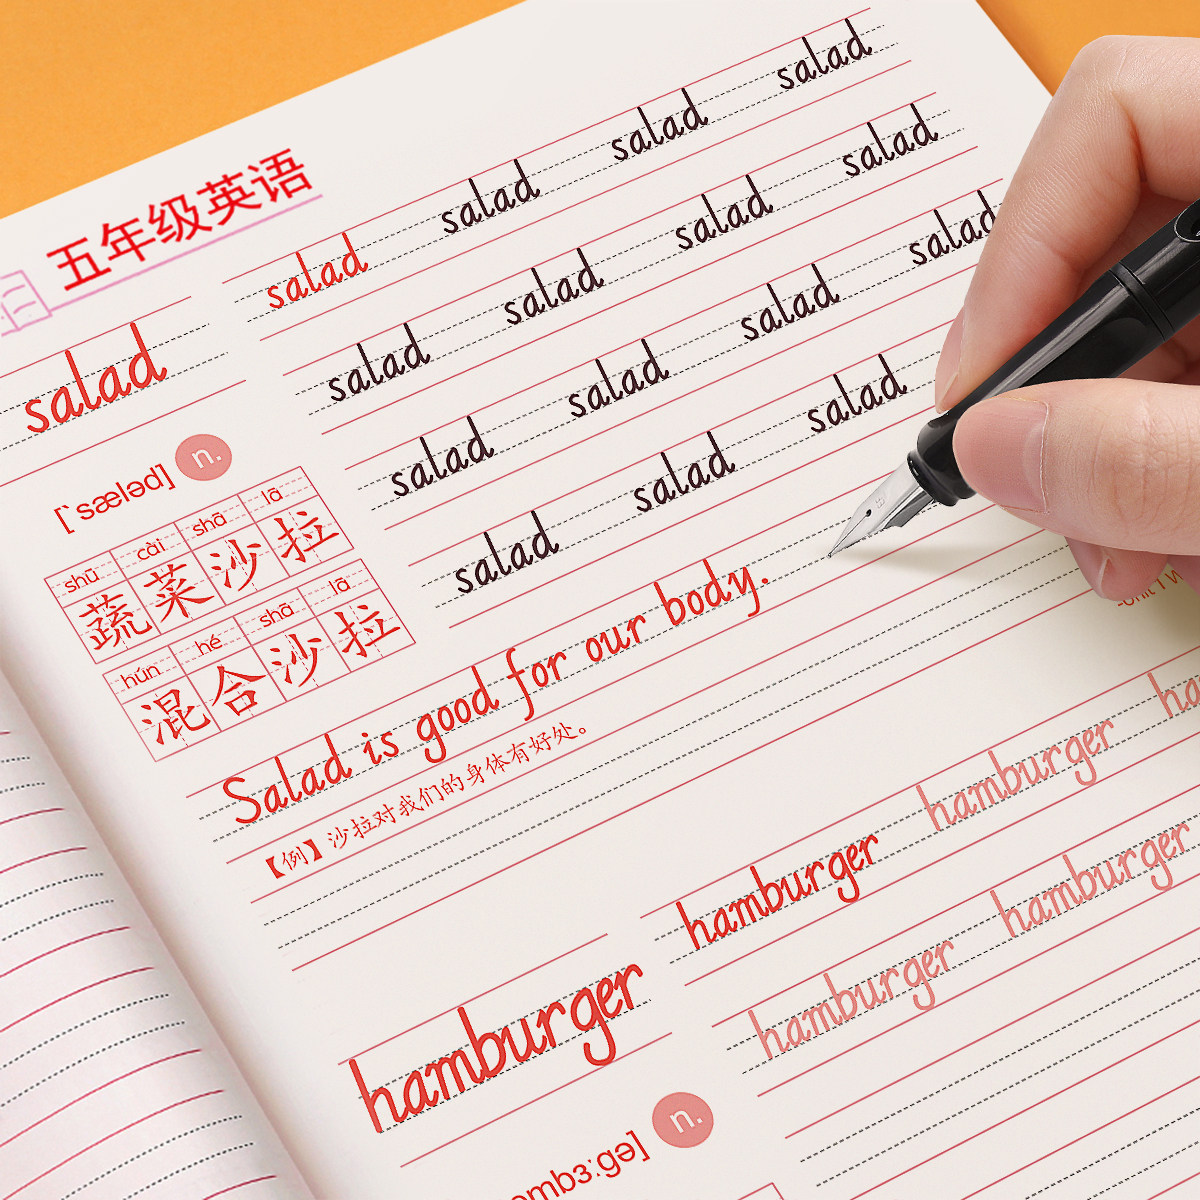 五年级英语
salad salad salad salad
salad
salad salad salad salad
salad salad salad salad
salad salad salad
[ˈsæləd] n.
shū cài shā lā
蔬菜沙拉
hún hé shā lā
混合沙拉
Salad is good for our body.
【例】沙拉对我们的身体有好处。
hamburger hamburger
hamburger hamburger
hamburger
n.